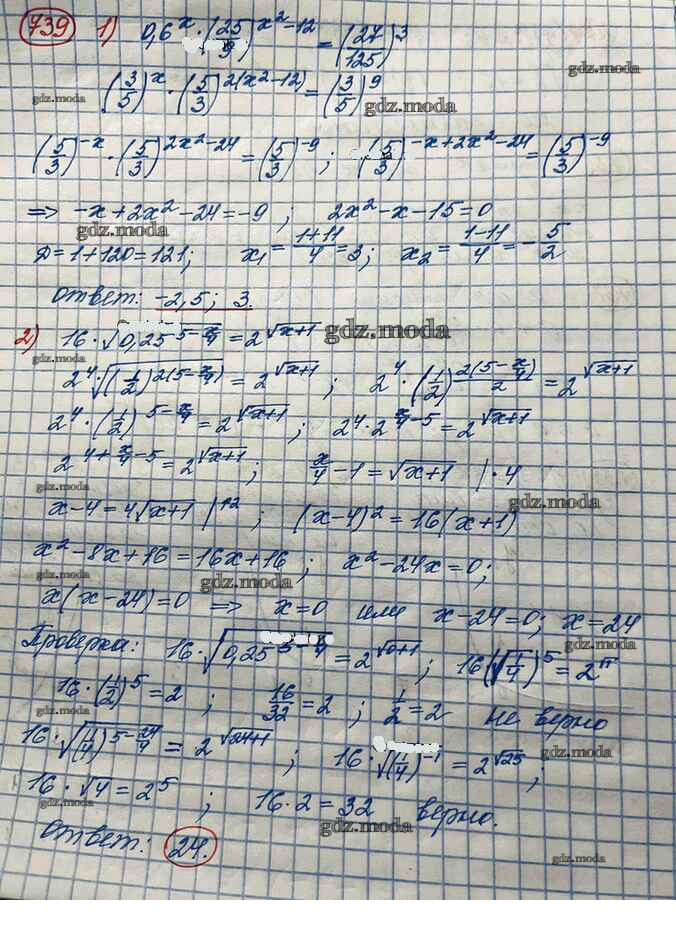 739 1) 0,6^x · (25/9)^(x²-12) = (27/125)^3
gdz.moda
(3/5)^x · (5/3)^(2(x²-12)) = (3/5)^9
gdz.moda gdz.moda
(5/3)^(-x) · (5/3)^(2x²-24) = (5/3)^(-9) ; (5/3)^(-x+2x²-24) = (5/3)^(-9)
gdz.moda
=> -x+2x²-24=-9 ; 2x²-x-15=0
gdz.moda
D=1+120=121; x₁ = (1+11)/4 = 3; x₂ = (1-11)/4 = -5/2
gdz.moda gdz.moda
ответ: -2,5; 3.
2) 16·√(0,25^(5-x/4)) = 2^√(x+1) gdz.moda
gdz.moda
2^4·√((1/2)^(2(5-x/4))) = 2^√(x+1) ; 2^4·(1/2)^(2(5-x/4)/2) = 2^√(x+1)
2^4·(1/2)^(5-x/4) = 2^√(x+1) ; 2^4·2^(x/4-5) = 2^√(x+1)
gdz.moda
2^(4+x/4-5) = 2^√(x+1) ; x/4-1=√(x+1) |·4
gdz.moda gdz.moda
x-4=4√(x+1) |↑2 ; (x-4)²=16(x+1)
gdz.moda
x²-8x+16=16x+16 ; x²-24x=0;
gdz.moda gdz.moda
x(x-24)=0 => x=0 или x-24=0; x=24
Проверка: 16·√(0,25^(5-0/4)) = 2^√(0+1) ; 16(√(1/4))^5=2^√1
gdz.moda gdz.moda
16·(1/2)^5=2 ; 16/32=2 ; 1/2=2 не верно
gdz.moda
16·√((1/4)^(5-24/4)) = 2^√(24+1) ; 16·√((1/4)^(-1)) = 2^√25 ;
gdz.moda
16·√4=2^5 ; 16·2=32 верно.
gdz.moda gdz.moda
ответ: 24.
gdz.moda